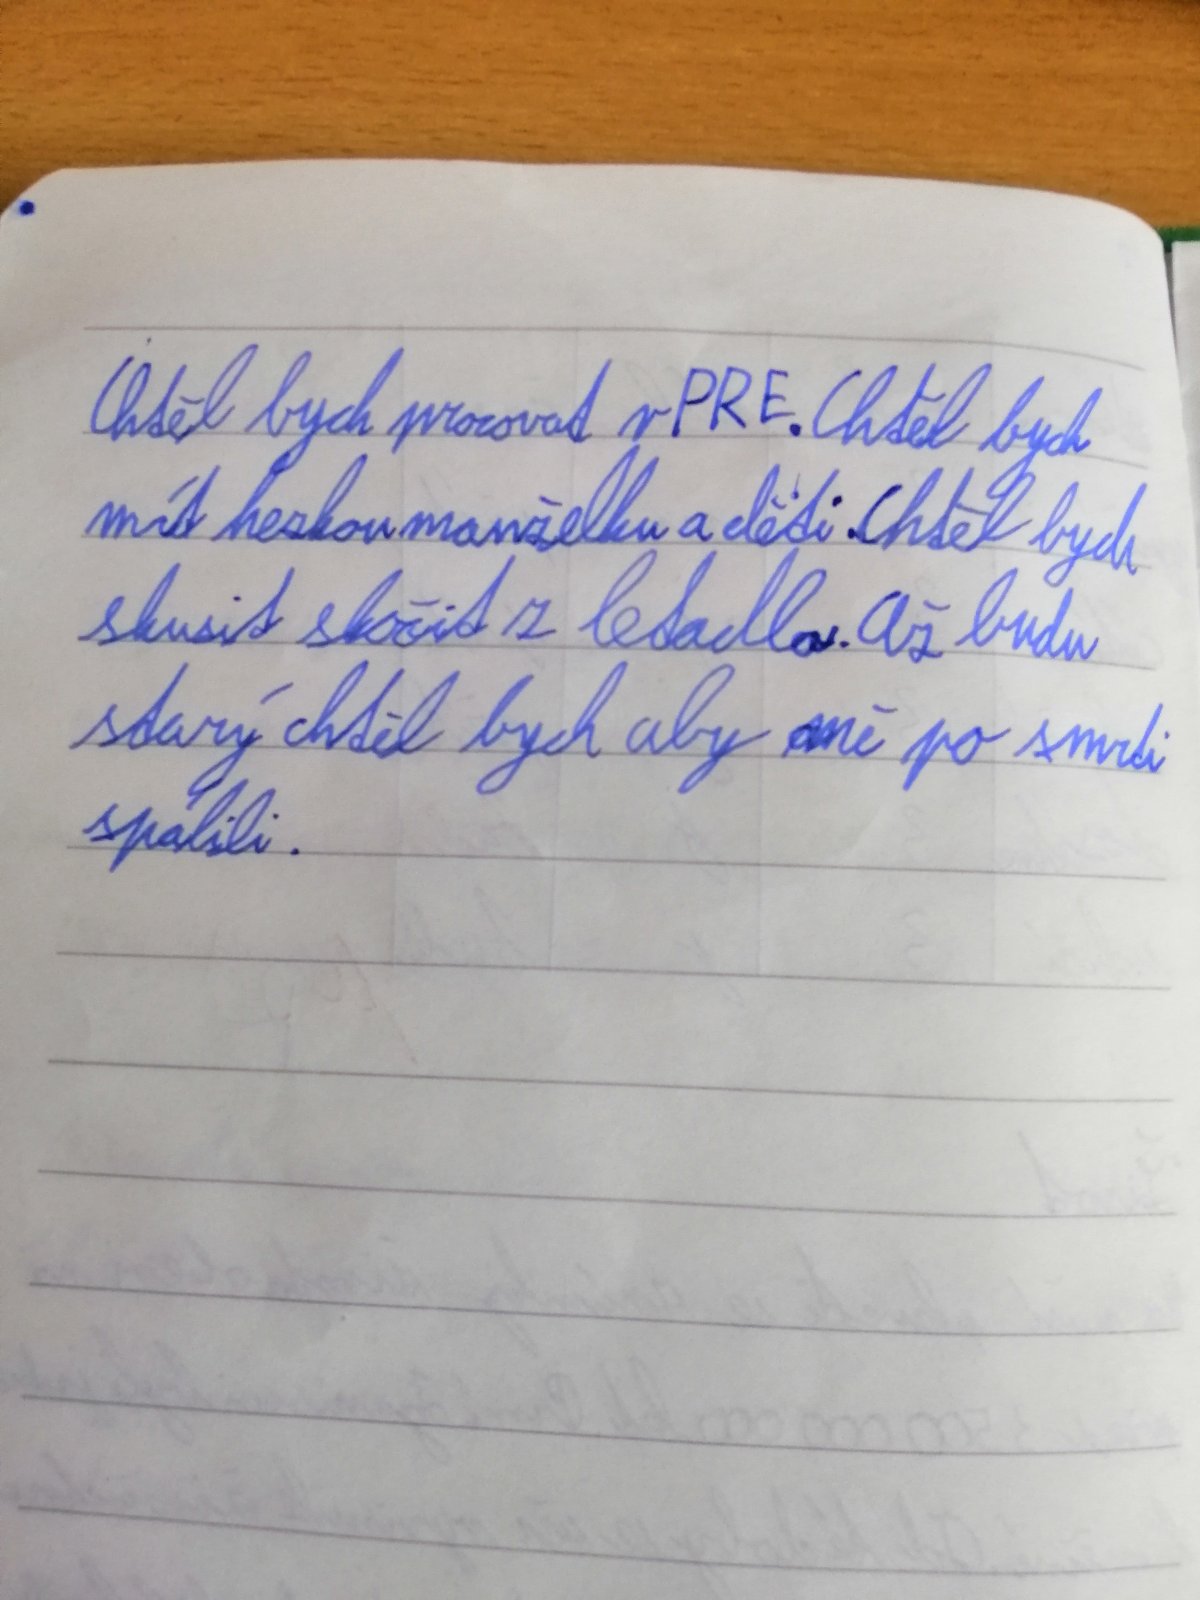 Chtěl bych procovat v PRE. Chtěl bych
mít hezkou manželku a děti. Chtěl bych
skusit skočit z letadla. Až budu
starý chtěl bych aby mě po smrti
spálili.